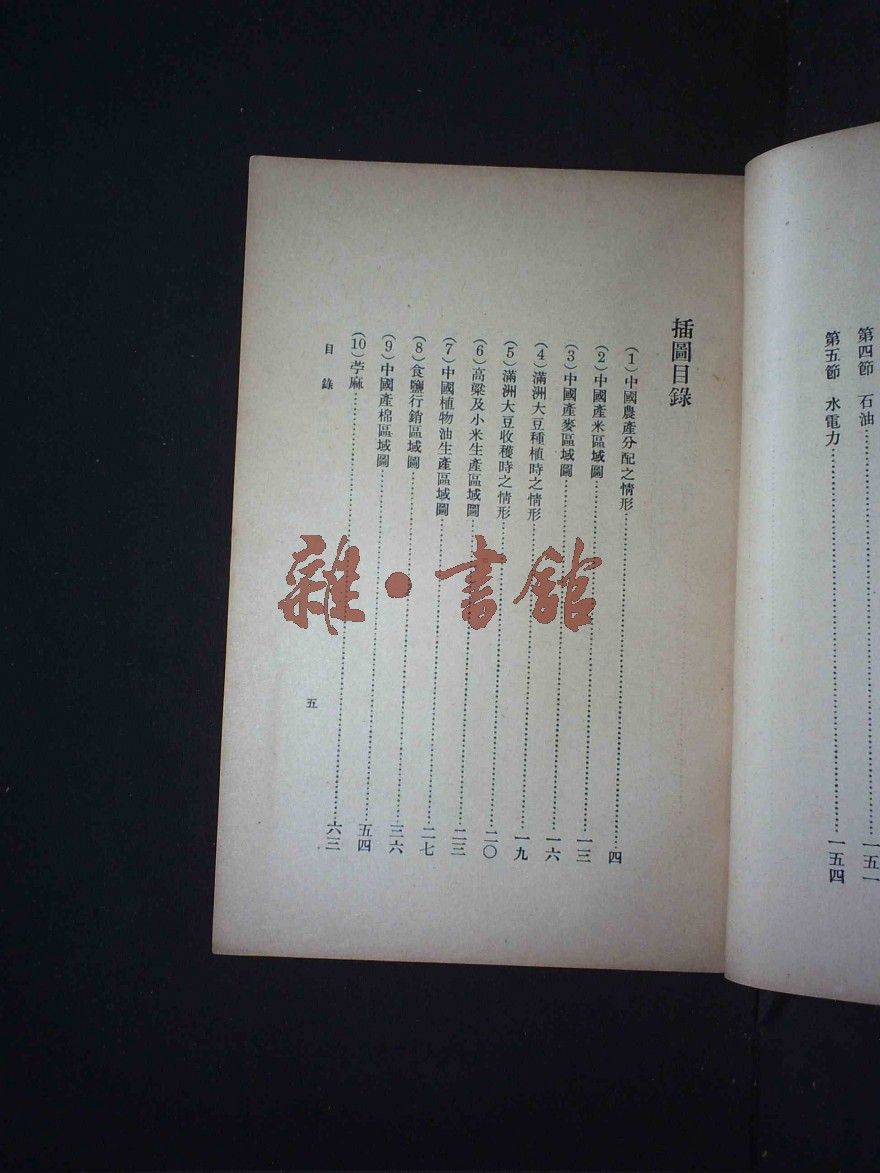 第四節　石油……一五一
第五節　水電力……一五四
插圖目錄
(1)中國農產分配之情形……四
(2)中國產米區域圖……一三
(3)中國產麥區域圖……一六
(4)滿洲大豆種植時之情形……一九
(5)滿洲大豆收穫時之情形……二〇
(6)高粱及小米生產區域圖……二三
(7)中國植物油生產區域圖……二七
(8)食鹽行銷區域圖……三六
(9)中國產棉區域圖……五四
(10)苧麻……六三
目錄
五
雜·書館